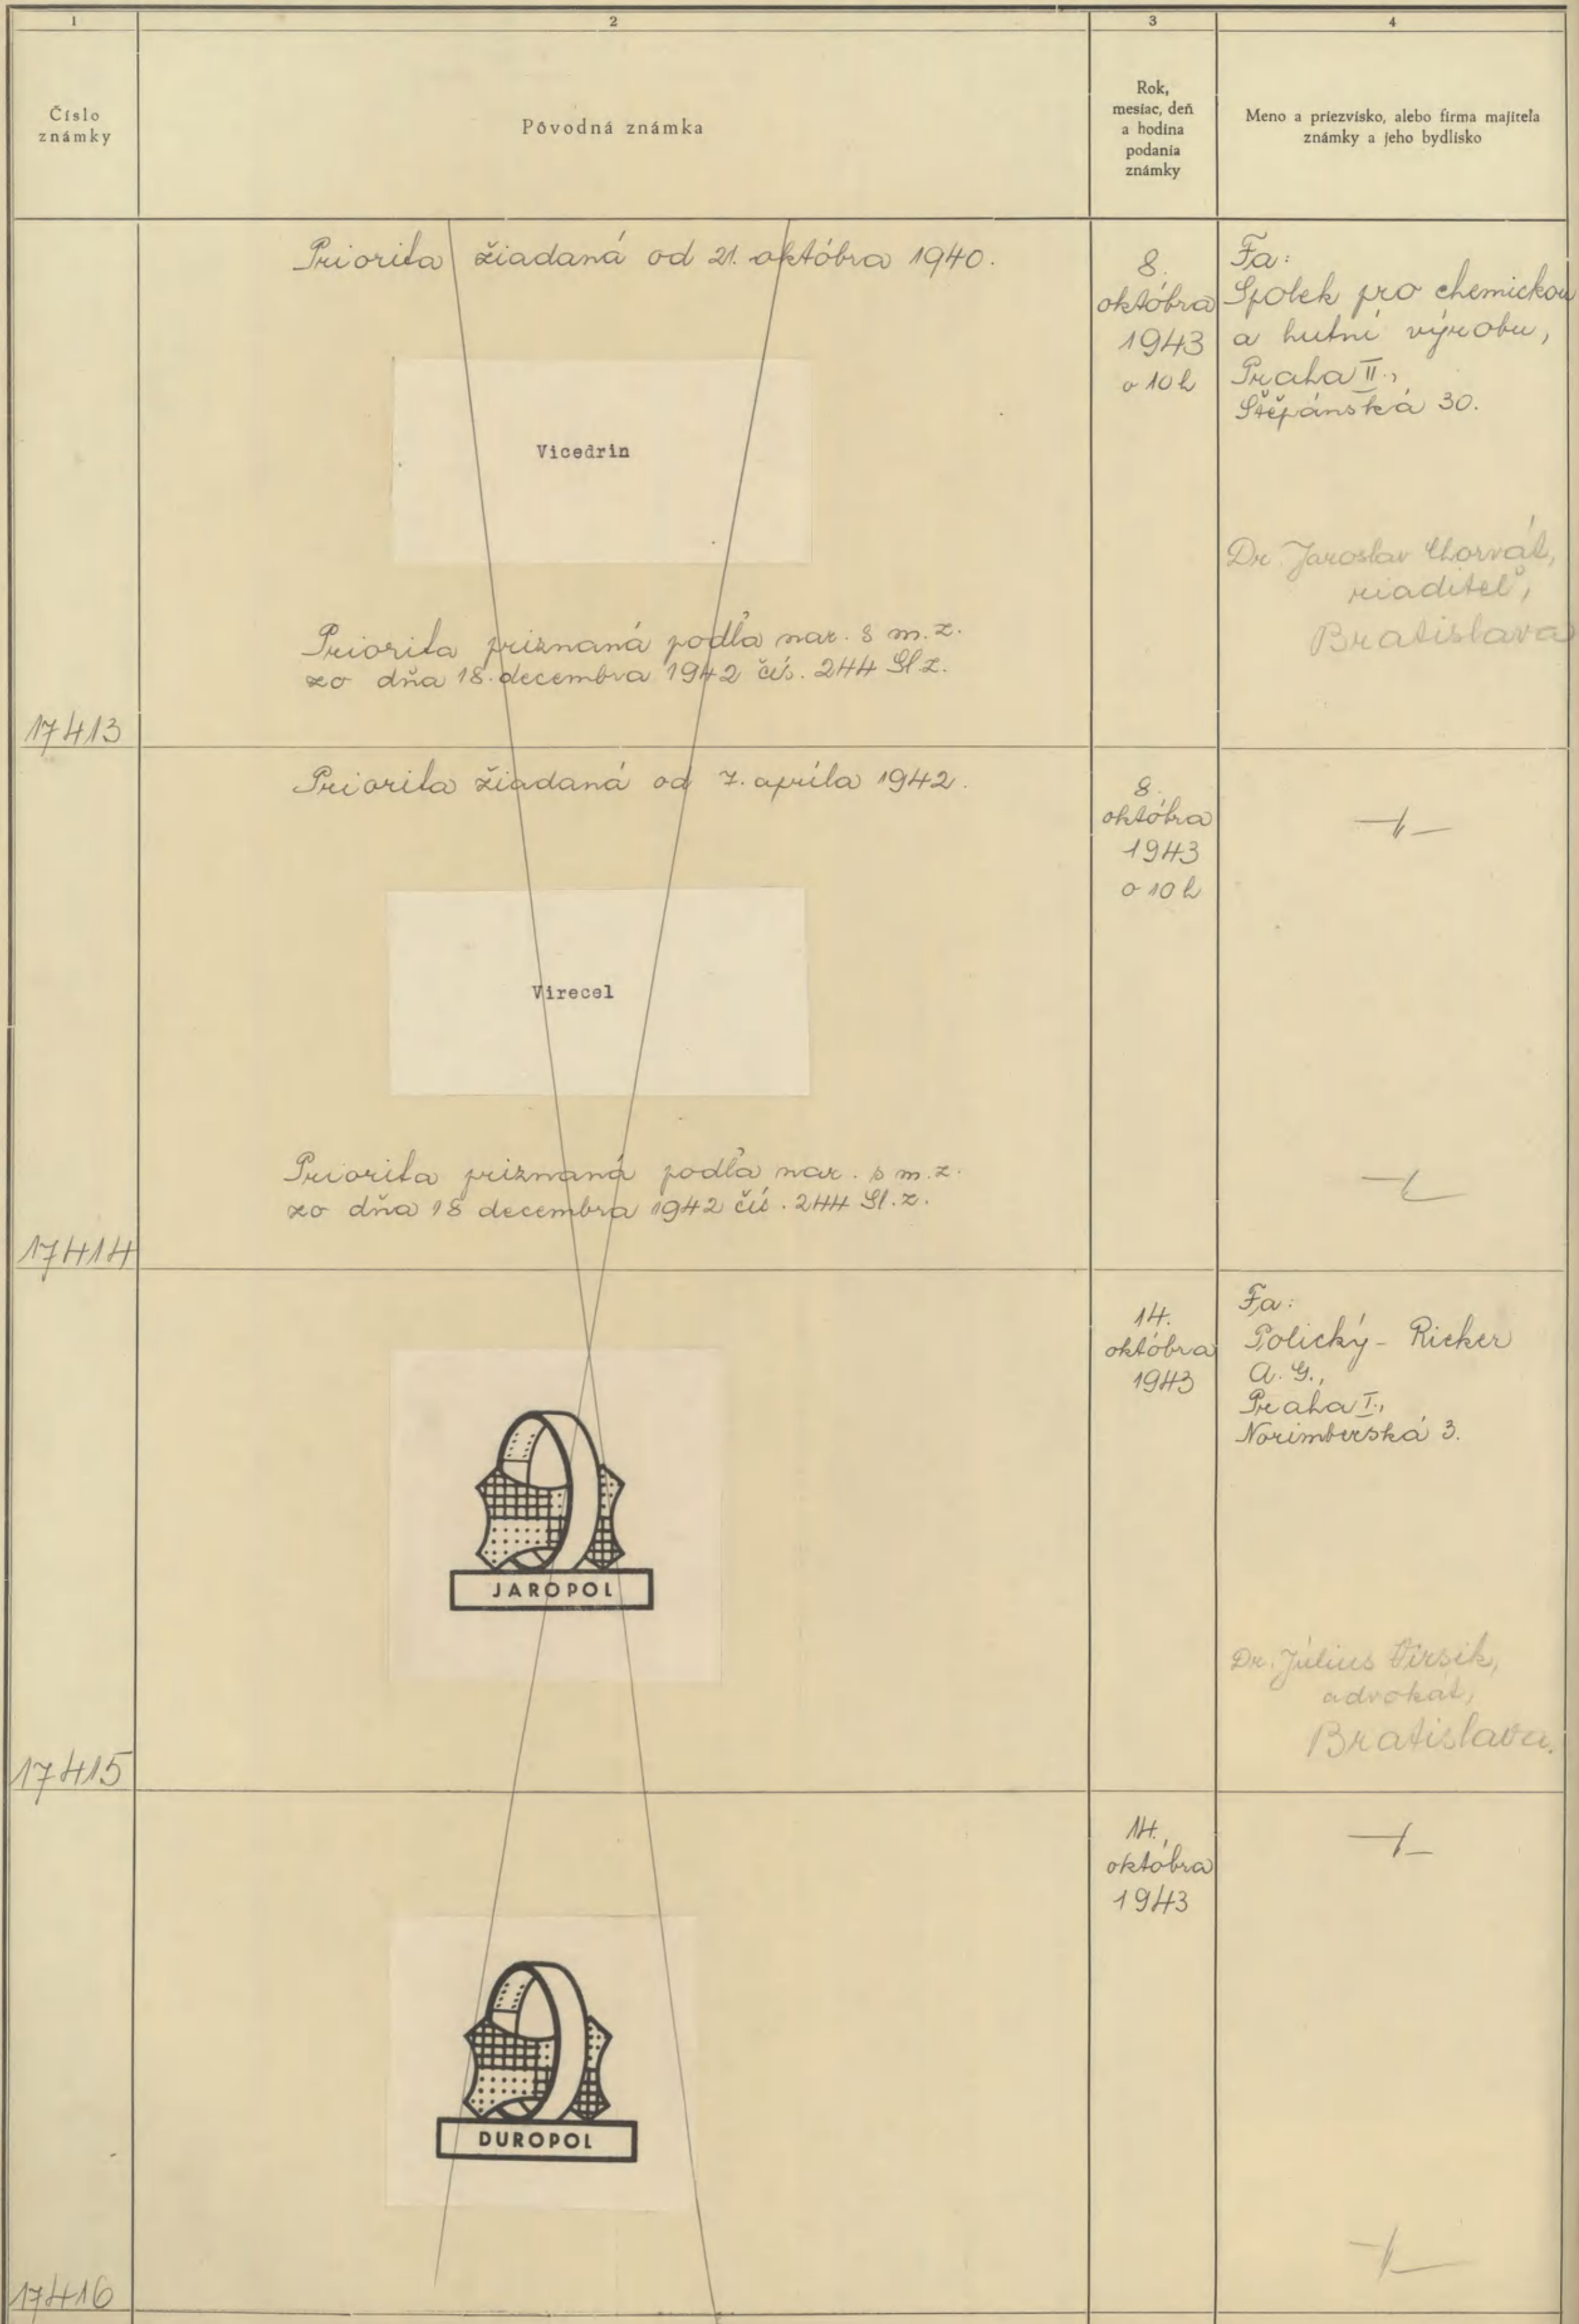 1
2
3
4
Číslo
známky
Pôvodná známka
Rok,
mesiac, deň
a hodina
podania
známky
Meno a priezvisko, alebo firma majiteľa
známky a jeho bydlisko
Priorita žiadaná od 21. októbra 1940.
Vicedrin
Priorita priznaná podľa nar. s m. z.
zo dňa 18. decembra 1942 čís. 244 Sl. z.
17413
8.
októbra
1943
o 10 h
Fa:
Spolek pro chemickou
a hutní výrobu,
Praha II.,
Štěpánská 30.
Dr. Jaroslav Chorvát,
riaditeľ,
Bratislava
Priorita žiadaná od 7. apríla 1942.
Virecel
Priorita priznaná podľa nar. s m. z.
zo dňa 18 decembra 1942 čís. 244 Sl. z.
17414
8.
októbra
1943
o 10 h
JAROPOL
17415
14.
októbra
1943
Fa:
Polický - Ricker
A. G.,
Praha I.,
Norimberská 3.
Dr. Július Viršik,
advokát,
Bratislava.
DUROPOL
17416
14.
októbra
1943